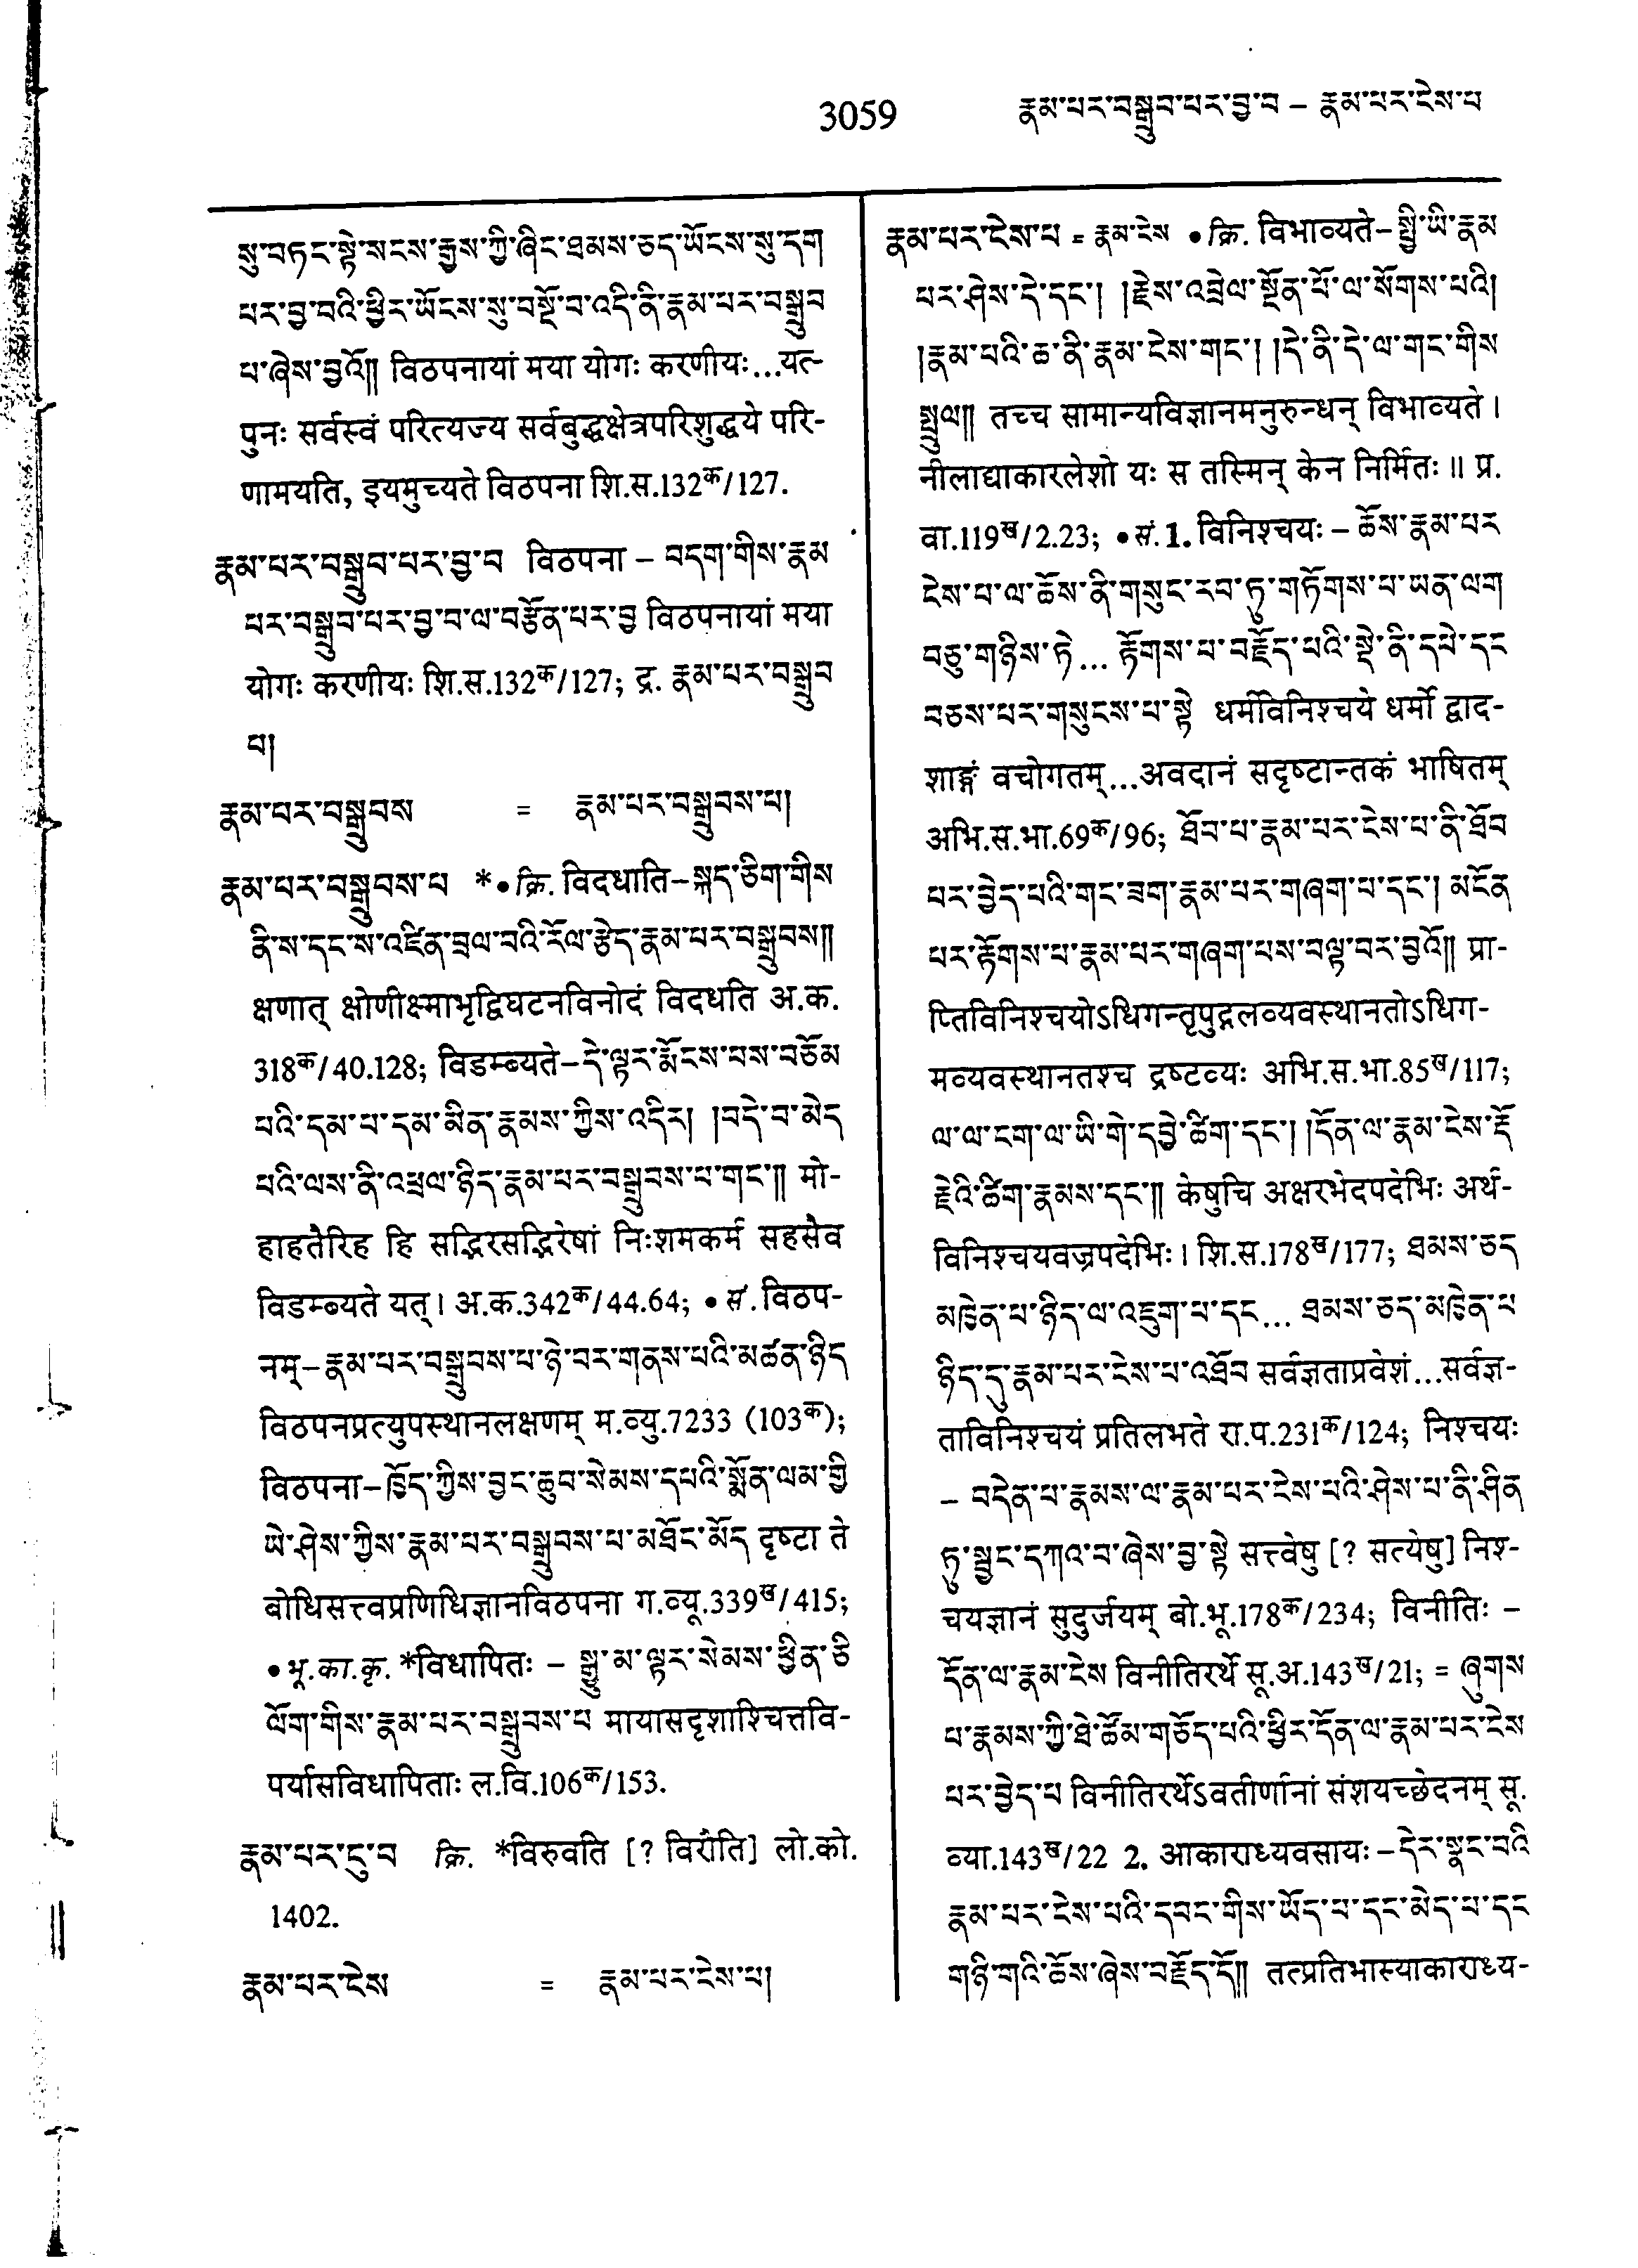 3059
རྣམ་པར་བསྒྲུབ་པར་བྱ་བ – རྣམ་པར་ངེས་པ
སུ་བཏང་སྟེ་སངས་རྒྱས་ཀྱི་ཞིང་ཐམས་ཅད་ཡོངས་སུ་དག
པར་བྱ་བའི་ཕྱིར་ཡོངས་སུ་བསྔོ་བ་འདི་ནི་རྣམ་པར་བསྒྲུབ
པ་ཞེས་བྱའོ།། विठपनायां मया योगः करणीयः...यत्-
पुनः सर्वस्वं परित्यज्य सर्वबुद्धक्षेत्रपरिशुद्धये परि-
णामयति, इयमुच्यते विठपना शि.स.132क/127.
རྣམ་པར་བསྒྲུབ་པར་བྱ་བ विठपना – བདག་གིས་རྣམ
པར་བསྒྲུབ་པར་བྱ་བ་ལ་བརྩོན་པར་བྱ विठपनायां मया
योगः करणीयः शि.स.132क/127; द्र. རྣམ་པར་བསྒྲུབ
པ།
རྣམ་པར་བསྒྲུབས = རྣམ་པར་བསྒྲུབས་པ།
རྣམ་པར་བསྒྲུབས་པ *• क्रि. विदधाति–སྐད་ཅིག་གིས
ནི་ས་དང་ས་འཛིན་བྲལ་བའི་རོལ་རྩེད་རྣམ་པར་བསྒྲུབས།།
क्षणात् क्षोणीक्ष्माभृद्विघटनविनोदं विदधति अ.क.
318क/40.128; विडम्ब्यते–དེ་ལྟར་རྨོངས་པས་བཅོམ
པའི་དམ་པ་དམ་མིན་རྣམས་ཀྱིས་འདིར། །བདེ་བ་མེད
པའི་ལས་ནི་འཕྲལ་ཉིད་རྣམ་པར་བསྒྲུབས་པ་གང་།། मो-
हाहतैरिह हि सद्भिरसद्भिरेषां निःशमकर्म सहसैव
विडम्ब्यते यत्। अ.क.342क/44.64; • सं. विठप-
नम्–རྣམ་པར་བསྒྲུབས་པ་ཉེ་བར་གནས་པའི་མཚན་ཉིད
विठपनप्रत्युपस्थानलक्षणम् म.व्यु.7233 (103क);
विठपना–ཁྱོད་ཀྱིས་བྱང་ཆུབ་སེམས་དཔའི་སྨོན་ལམ་གྱི
ཡེ་ཤེས་ཀྱིས་རྣམ་པར་བསྒྲུབས་པ་མཐོང་མོད दृष्टा ते
बोधिसत्त्वप्रणिधिज्ञानविठपना ग.व्यू.339ख/415;
• भू.का.कृ. *विधापितः – སྒྱུ་མ་ལྟར་སེམས་ཕྱིན་ཅི
ལོག་གིས་རྣམ་པར་བསྒྲུབས་པ मायासदृशाश्चित्तवि-
पर्यासविधापिताः ल.वि.106क/153.
རྣམ་པར་ངུ་བ क्रि. *विरुवति [? विरौति] लो.को.
1402.
རྣམ་པར་ངེས = རྣམ་པར་ངེས་པ།
རྣམ་པར་ངེས་པ = རྣམ་ངེས • क्रि. विभाव्यते–སྤྱི་ཡི་རྣམ
པར་ཤེས་དེ་དང་། །རྗེས་འབྲེལ་སྔོན་པོ་ལ་སོགས་པའི།
།རྣམ་པའི་ཆ་ནི་རྣམ་ངེས་གང་། །དེ་ནི་དེ་ལ་གང་གིས
སྤྲུལ།། तच्च सामान्यविज्ञानमनुरुन्धन् विभाव्यते।
नीलाद्याकारलेशो यः स तस्मिन् केन निर्मितः॥ प्र.
वा.119ख/2.23; • सं. 1. विनिश्चयः – ཆོས་རྣམ་པར
ངེས་པ་ལ་ཆོས་ནི་གསུང་རབ་ཏུ་གཏོགས་པ་ཡན་ལག
བཅུ་གཉིས་ཏེ... རྟོགས་པ་བརྗོད་པའི་སྡེ་ནི་དཔེ་དང
བཅས་པར་གསུངས་པ་སྟེ धर्मविनिश्चये धर्मो द्वाद-
शाङ्गं वचोगतम्...अवदानं सदृष्टान्तकं भाषितम्
अभि.स.भा.69क/96; ཐོབ་པ་རྣམ་པར་ངེས་པ་ནི་ཐོབ
པར་བྱེད་པའི་གང་ཟག་རྣམ་པར་གཞག་པ་དང་། མངོན
པར་རྟོགས་པ་རྣམ་པར་གཞག་པས་བལྟ་བར་བྱའོ།། प्रा-
प्तिविनिश्चयोऽधिगन्तृपुद्गलव्यवस्थानतोऽधिग-
मव्यवस्थानतश्च द्रष्टव्यः अभि.स.भा.85ख/117;
ལ་ལ་ངག་ལ་ཡི་གེ་དབྱེ་ཚིག་དང་། །དོན་ལ་རྣམ་ངེས་རྡོ
རྗེའི་ཚིག་རྣམས་དང་།། केषुचि अक्षरभेदपदेभिः अर्थ-
विनिश्चयवज्रपदेभिः। शि.स.178ख/177; ཐམས་ཅད
མཁྱེན་པ་ཉིད་ལ་འཇུག་པ་དང... ཐམས་ཅད་མཁྱེན་པ
ཉིད་དུ་རྣམ་པར་ངེས་པ་འཐོབ सर्वज्ञताप्रवेशं...सर्वज्ञ-
ताविनिश्चयं प्रतिलभते रा.प.231क/124; निश्चयः
– བདེན་པ་རྣམས་ལ་རྣམ་པར་ངེས་པའི་ཤེས་པ་ནི་ཤིན
ཏུ་སྦྱང་དཀའ་བ་ཞེས་བྱ་སྟེ सत्त्वेषु [? सत्येषु] निश्-
चयज्ञानं सुदुर्जयम् बो.भू.178क/234; विनीतिः –
དོན་ལ་རྣམ་ངེས विनीतिरर्थे सू.अ.143ख/21; = ཞུགས
པ་རྣམས་ཀྱི་ཐེ་ཚོམ་གཅོད་པའི་ཕྱིར་དོན་ལ་རྣམ་པར་ངེས
པར་བྱེད་པ विनीतिरर्थेऽवतीर्णानां संशयच्छेदनम् सू.
व्या.143ख/22 2. आकाराध्यवसायः –དེར་སྣང་བའི
རྣམ་པར་ངེས་པའི་དབང་གིས་ཡོད་པ་དང་མེད་པ་དང
གཉི་གའི་ཆོས་ཞེས་བརྗོད་དོ།། तत्प्रतिभास्याकाराध्य-